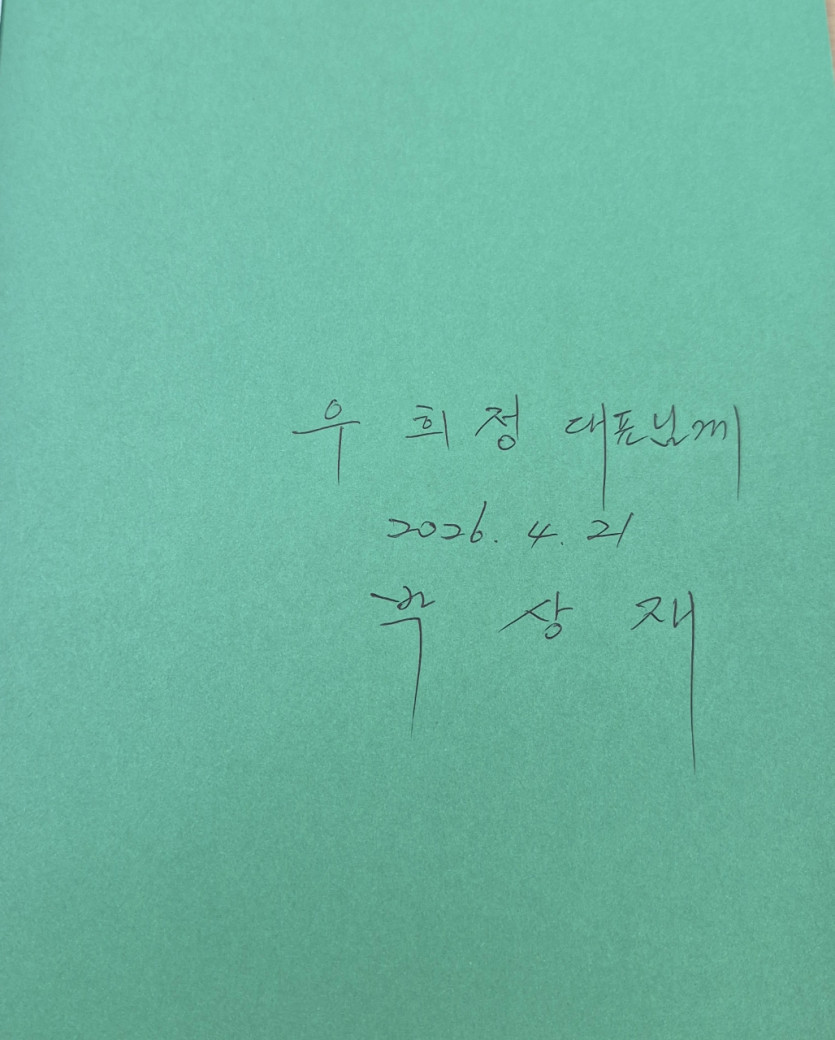 우 희정 대표님께
2026. 4. 21
상재